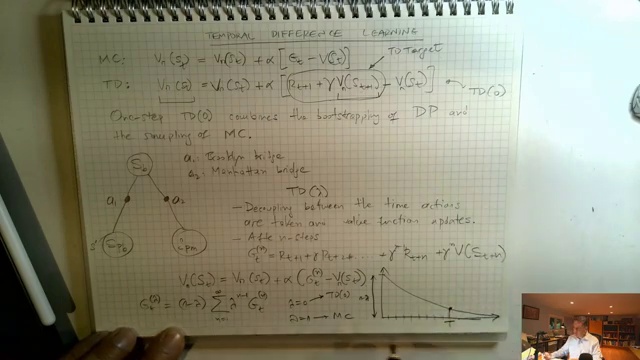 TEMPORAL DIFFERENCE LEARNING
MC: Vπ(St) = Vπ(St) + α [Gt - V(St)]
TD Target
TD: Vπ(St) = Vπ(St) + α [Rt+1 + γ Vπ(St+1) - Vπ(St)]
TD(0)
One-step TD(0) combines the bootstrapping of DP and
the sampling of MC.
S0
a1: Brooklyn bridge
a2: Manhattan bridge
a1
a2
TD(λ)
- Decoupling between the time actions
are taken and value function updates.
- After n-steps
+ γ^n V(St+n)
Vπ(St) = Vπ(St) + α (Gt^(n) - Vπ(St))
Gt^(λ) = (1-λ) Σ λ^n-1 Gt^(n)
λ=0 → TD(0)
λ=1 → MC
T